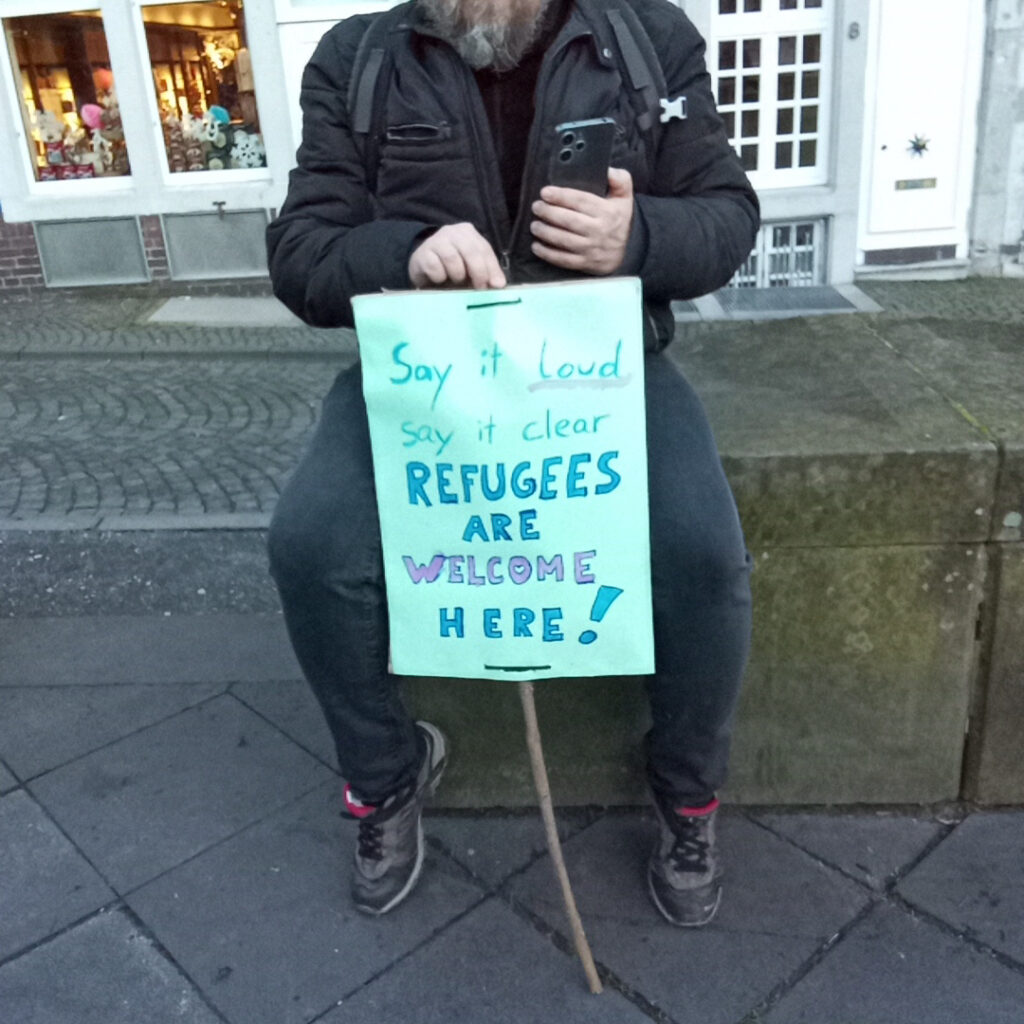 Say it Loud
say it clear
REFUGEES
ARE
WELCOME
HERE!
8